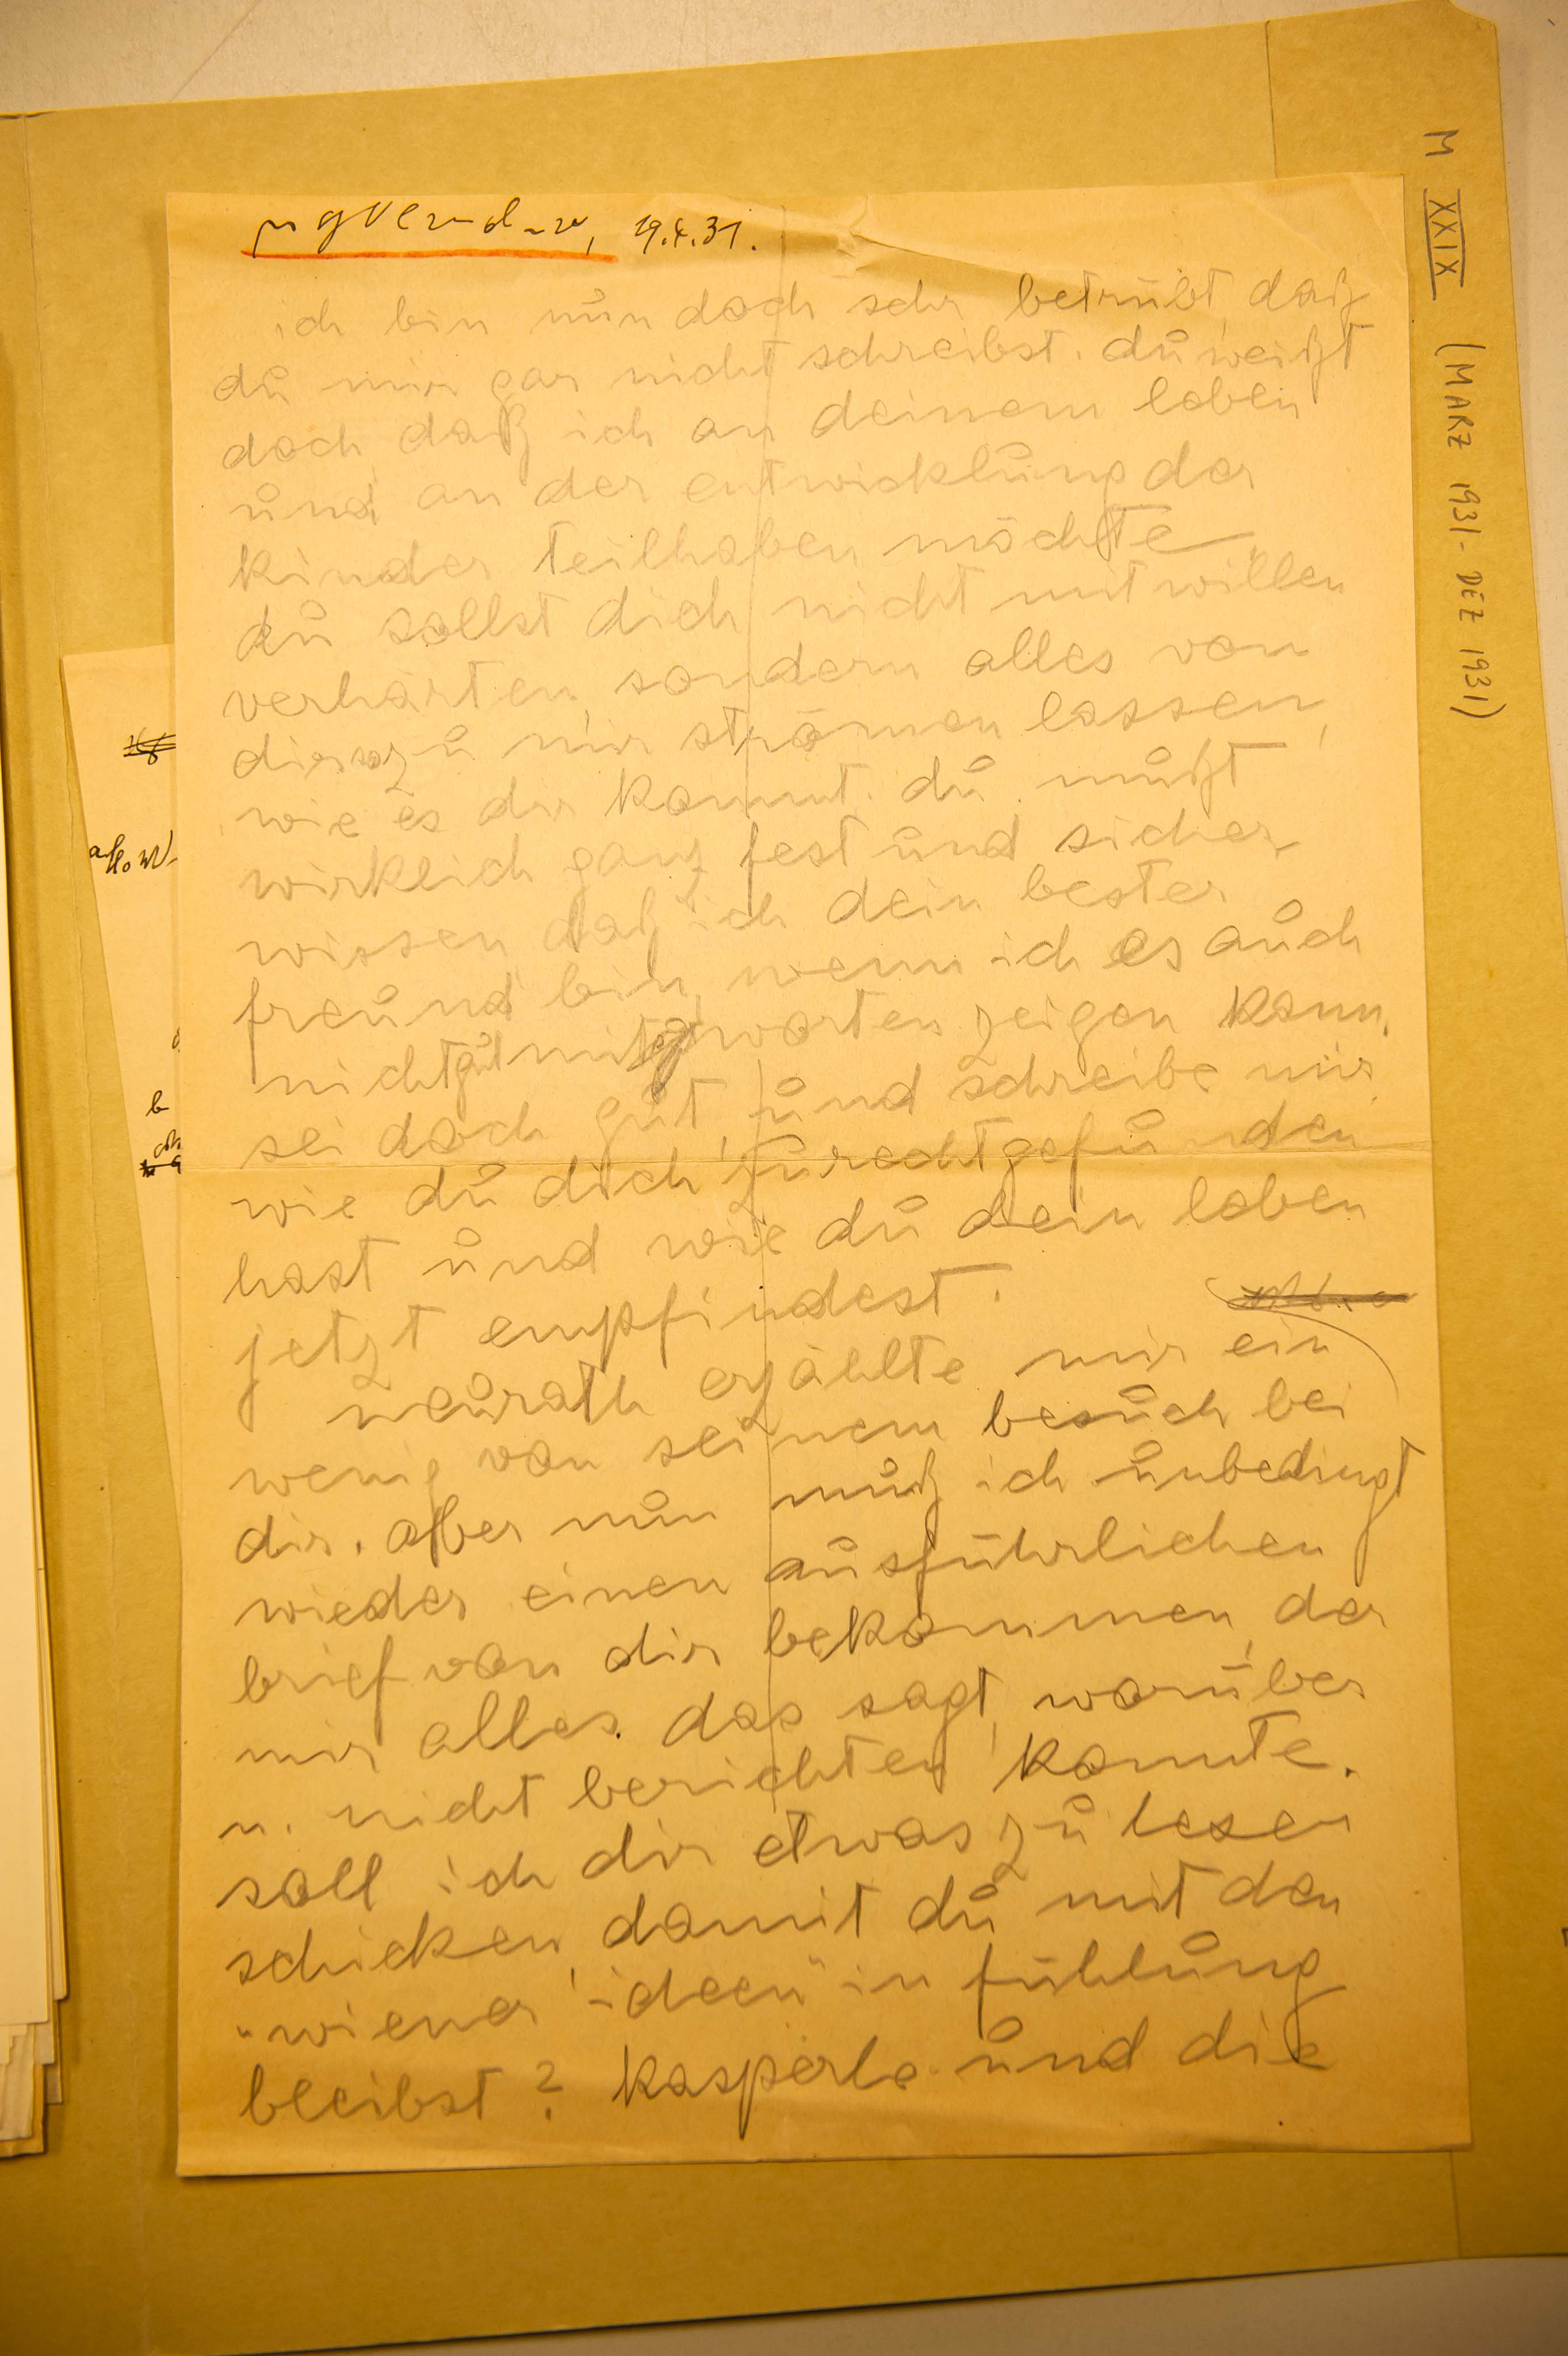 19.4.31.
ich bin nun doch sehr betrübt, daß
du mir gar nicht schreibst. du weißt
doch, daß ich an deinem leben
und an der entwicklung der
kinder teilhaben möchte.
du sollst dich nicht mit willen
verhärten, sondern alles von
dir zu mir strömen lassen,
wie es dir kommt. du mußt
wirklich ganz fest und sicher
wissen, daß ich dein bester
freund bin, wenn ich es auch
nicht gut mit worten zeigen kann.
sei doch gut, und schreibe mir,
wie du dich zurechtgefunden
hast und wie du dein leben
jetzt empfindest.
neurath erzählte mir ein
wenig von seinem besuch bei
dir. aber nun muß ich unbedingt
wieder einen ausführlichen
brief von dir bekommen, der
mir alles das sagt, worüber
n. nicht berichten konnte.
soll ich dir etwas zu lesen
schicken, damit du mit den
"wiener ideen" in fühlung
bleibst? kasperle und die
M XXIX (MARZ 1931 - DEZ 1931)